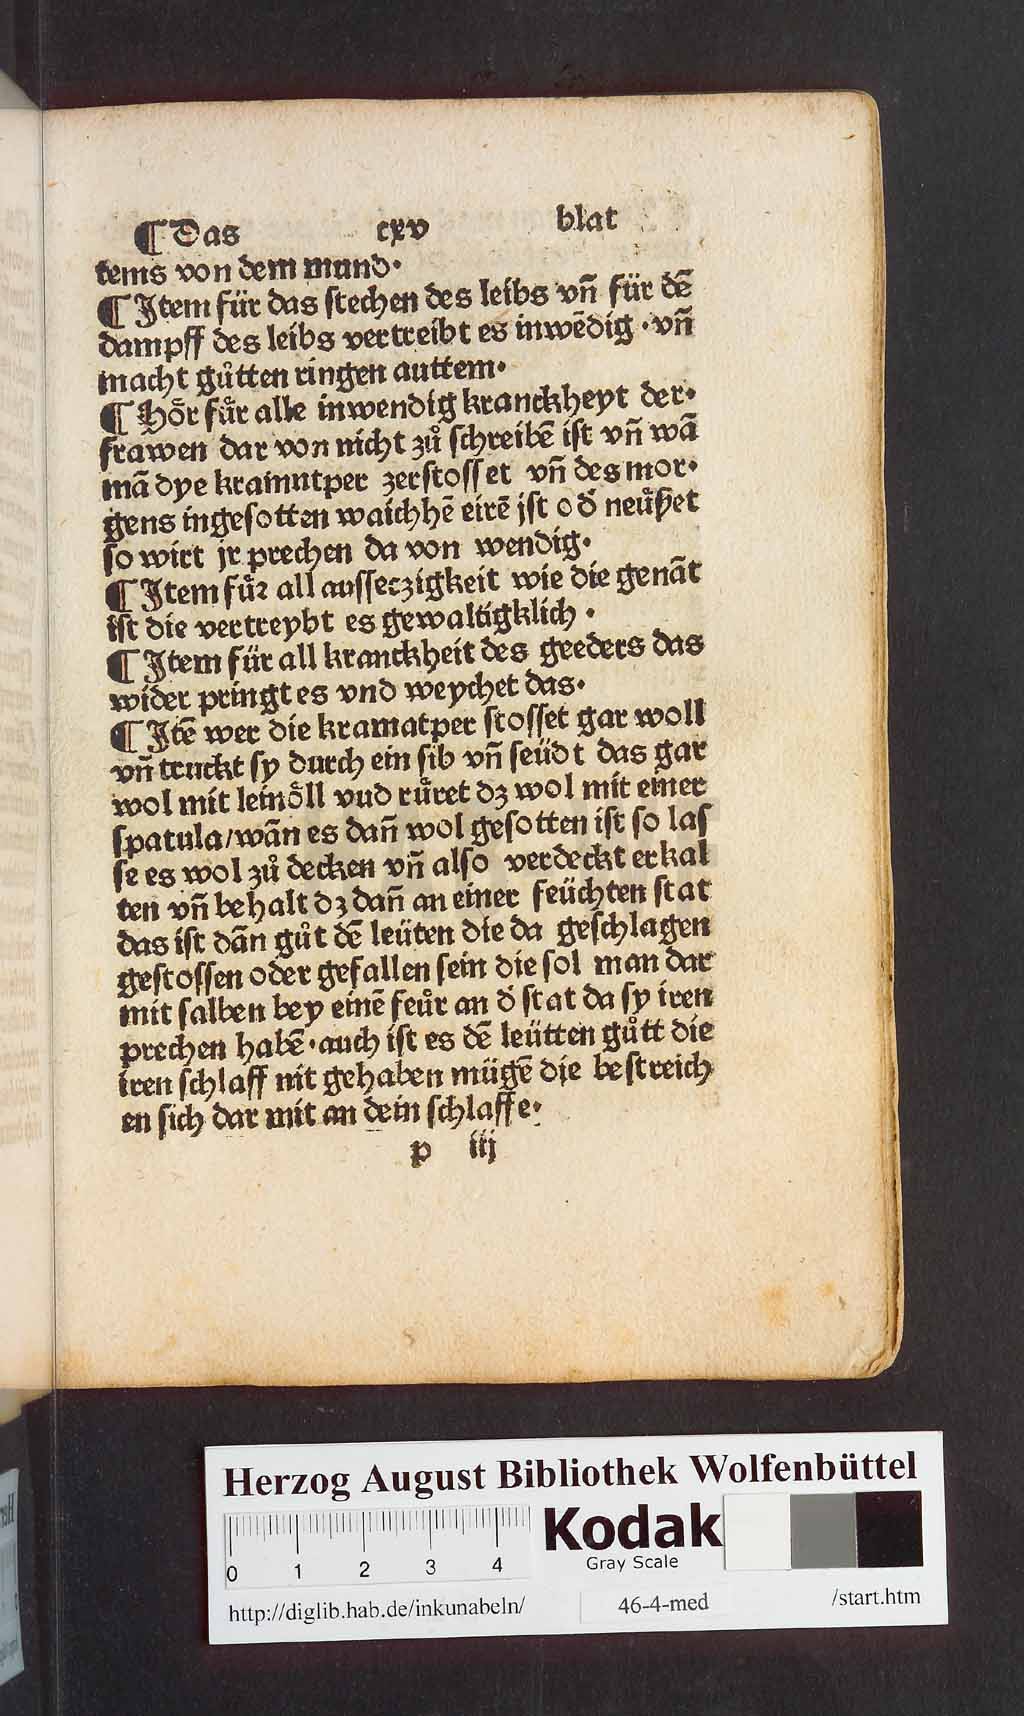 ¶ Das cxv blat
tems von dem mund·
¶ Jtem für das stechen des leibs vn̄ für dē
dampff des leibs vertreibt es inwēdig · vn̄
macht gůtten ringen auttem·
¶ Hoͤr fuͤr alle inwendig kranckheyt der·
frawen dar von nicht zů schreibē ist vn̄ wā
mā dye kramutper zerstosset vn̄ des mor·
gens ingesotten waichhē eirē jst od̄ neuͤßet
so wirt jr prechen da von wendig·
¶ Jtem fuͤr all ausseczigkeit wie die genāt
ist die vertreybt es gewaltigklich ·
¶ Jtem für all kranckheit des geeders das
wider pringt es vnd weychet das·
¶ Jtē wer die kramatper stosset gar woll
vn̄ truckt sy durch ein sib vn̄ seüdt das gar
wol mit leinoͤll vud ruͤret dz wol mit einer
spatula/wān es dan̄ wol gesotten ist so las
se es wol zů decken vn̄ also verdeckt erkal
ten vn̄ behalt dz dan̄ an einer feüchten stat
das ist dān gůt dē leüten die da geschlagen
gestossen oder gefallen sein die sol man dar
mit salben bey einē feuͤr an d̄ stat da sy iren
prechen habē·auch ist es dē leütten gůtt die
iren schlaff nit gehaben mügē die bestreich
en sich dar mit an dein schlaffe·
p iij
Herzog August Bibliothek Wolfenbüttel
0 1 2 3 4
Kodak
Gray Scale
http://diglib.hab.de/inkunabeln/ 46-4-med /start.htm